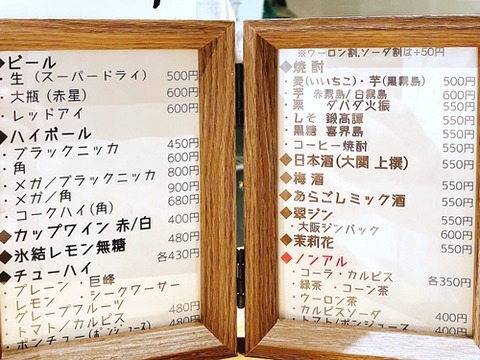 ◆ビール
・生（スーパードライ） 500円
・大瓶（赤星） 600円
・レッドアイ 600円
◆ハイボール
・ブラックニッカ 450円
・角 600円
・メガ/ブラックニッカ 800円
・メガ/角 900円
・コークハイ(角) 680円
◆カップワイン 赤/白 400円
◆氷結レモン無糖 480円
◆チューハイ 各430円
・プレーン ・巨峰
・レモン ・シークワーサー
・グレープフルーツ
・トマト/カルピス 480円
・ポンチュー(ポンジュース) 480円
※ウーロン割、ソーダ割は+50円
◆焼酎
・麦(いいちこ)・芋(黒霧島) 500円
・芋 赤霧島/白霧島 600円
・栗 ダバダ火振 550円
・しそ 鍛高譚 550円
・黒糖 喜界島 550円
・コーヒー焼酎 550円
◆日本酒(大関 上撰) 550円
◆梅酒 550円
◆あらごしミック酒 550円
◆翠ジン 550円
・大阪ジンバック 600円
◆茉莉花 550円
◆ノンアル
・コーラ・カルピス 各350円
・緑茶 ・コーン茶
・ウーロン茶
・カルピスソーダ 400円
・トマト/ポンジュース 400円